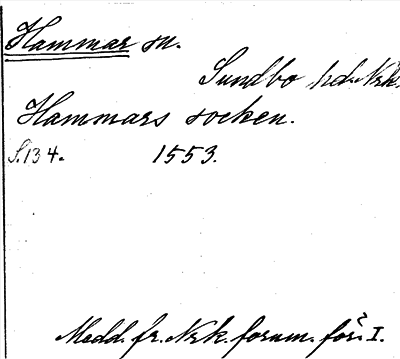 Hammar sn.
Sundbo hd. Nrk.
Hammars socken.
S.134. 1553.
Medd. fr. Nrk. fornm. för. I.